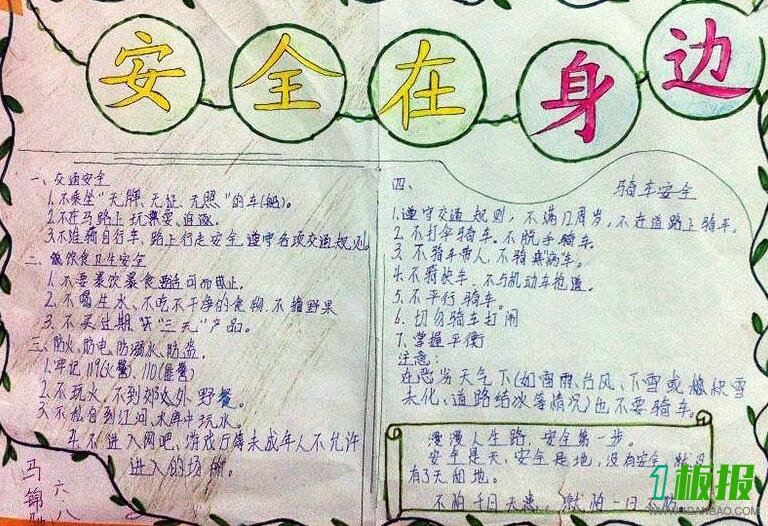 安全在身边
一、交通安全
1.不乘坐"无牌、无证、无照"的车(船)。
2.不在马路上玩耍、追逐.
3.不准骑自行车,路上行走安全,遵守各项交通规则.
二、饮食卫生安全
1.不要暴饮暴食 适可而止.
2.不喝生水、不吃不干净的食物.不摘野果
3.不买过期"三无"产品。
三、防火、防电、防溺水、防盗.
1.牢记119(火警)、110(匪警)
2.不玩火,不到郊外野餐。
3.不私自到江河、水库中玩水。
4.不进入网吧、游戏厅等未成年人不允许
进入的场所。
四、骑车安全
1.遵守交通规则,不满12周岁,不在道路上骑车。
2.不打伞骑车。不脱手骑车。
3.不骑车带人,不骑病车。
4.不骑快车,不与机动车抢道。
5.不平行骑车。
6.切勿骑车打闹
7.掌握平衡
注意:
在恶劣天气下(如雷雨、台风、下雪或积雪
未化、道路结冰等情况)也不要骑车。
漫漫人生路,安全第一步。
安全是天,安全是地,没有安全,就没
有了天和地。
不怕千日无患,就怕一日
马锦
六 八
1板报
1BANBAO.COM